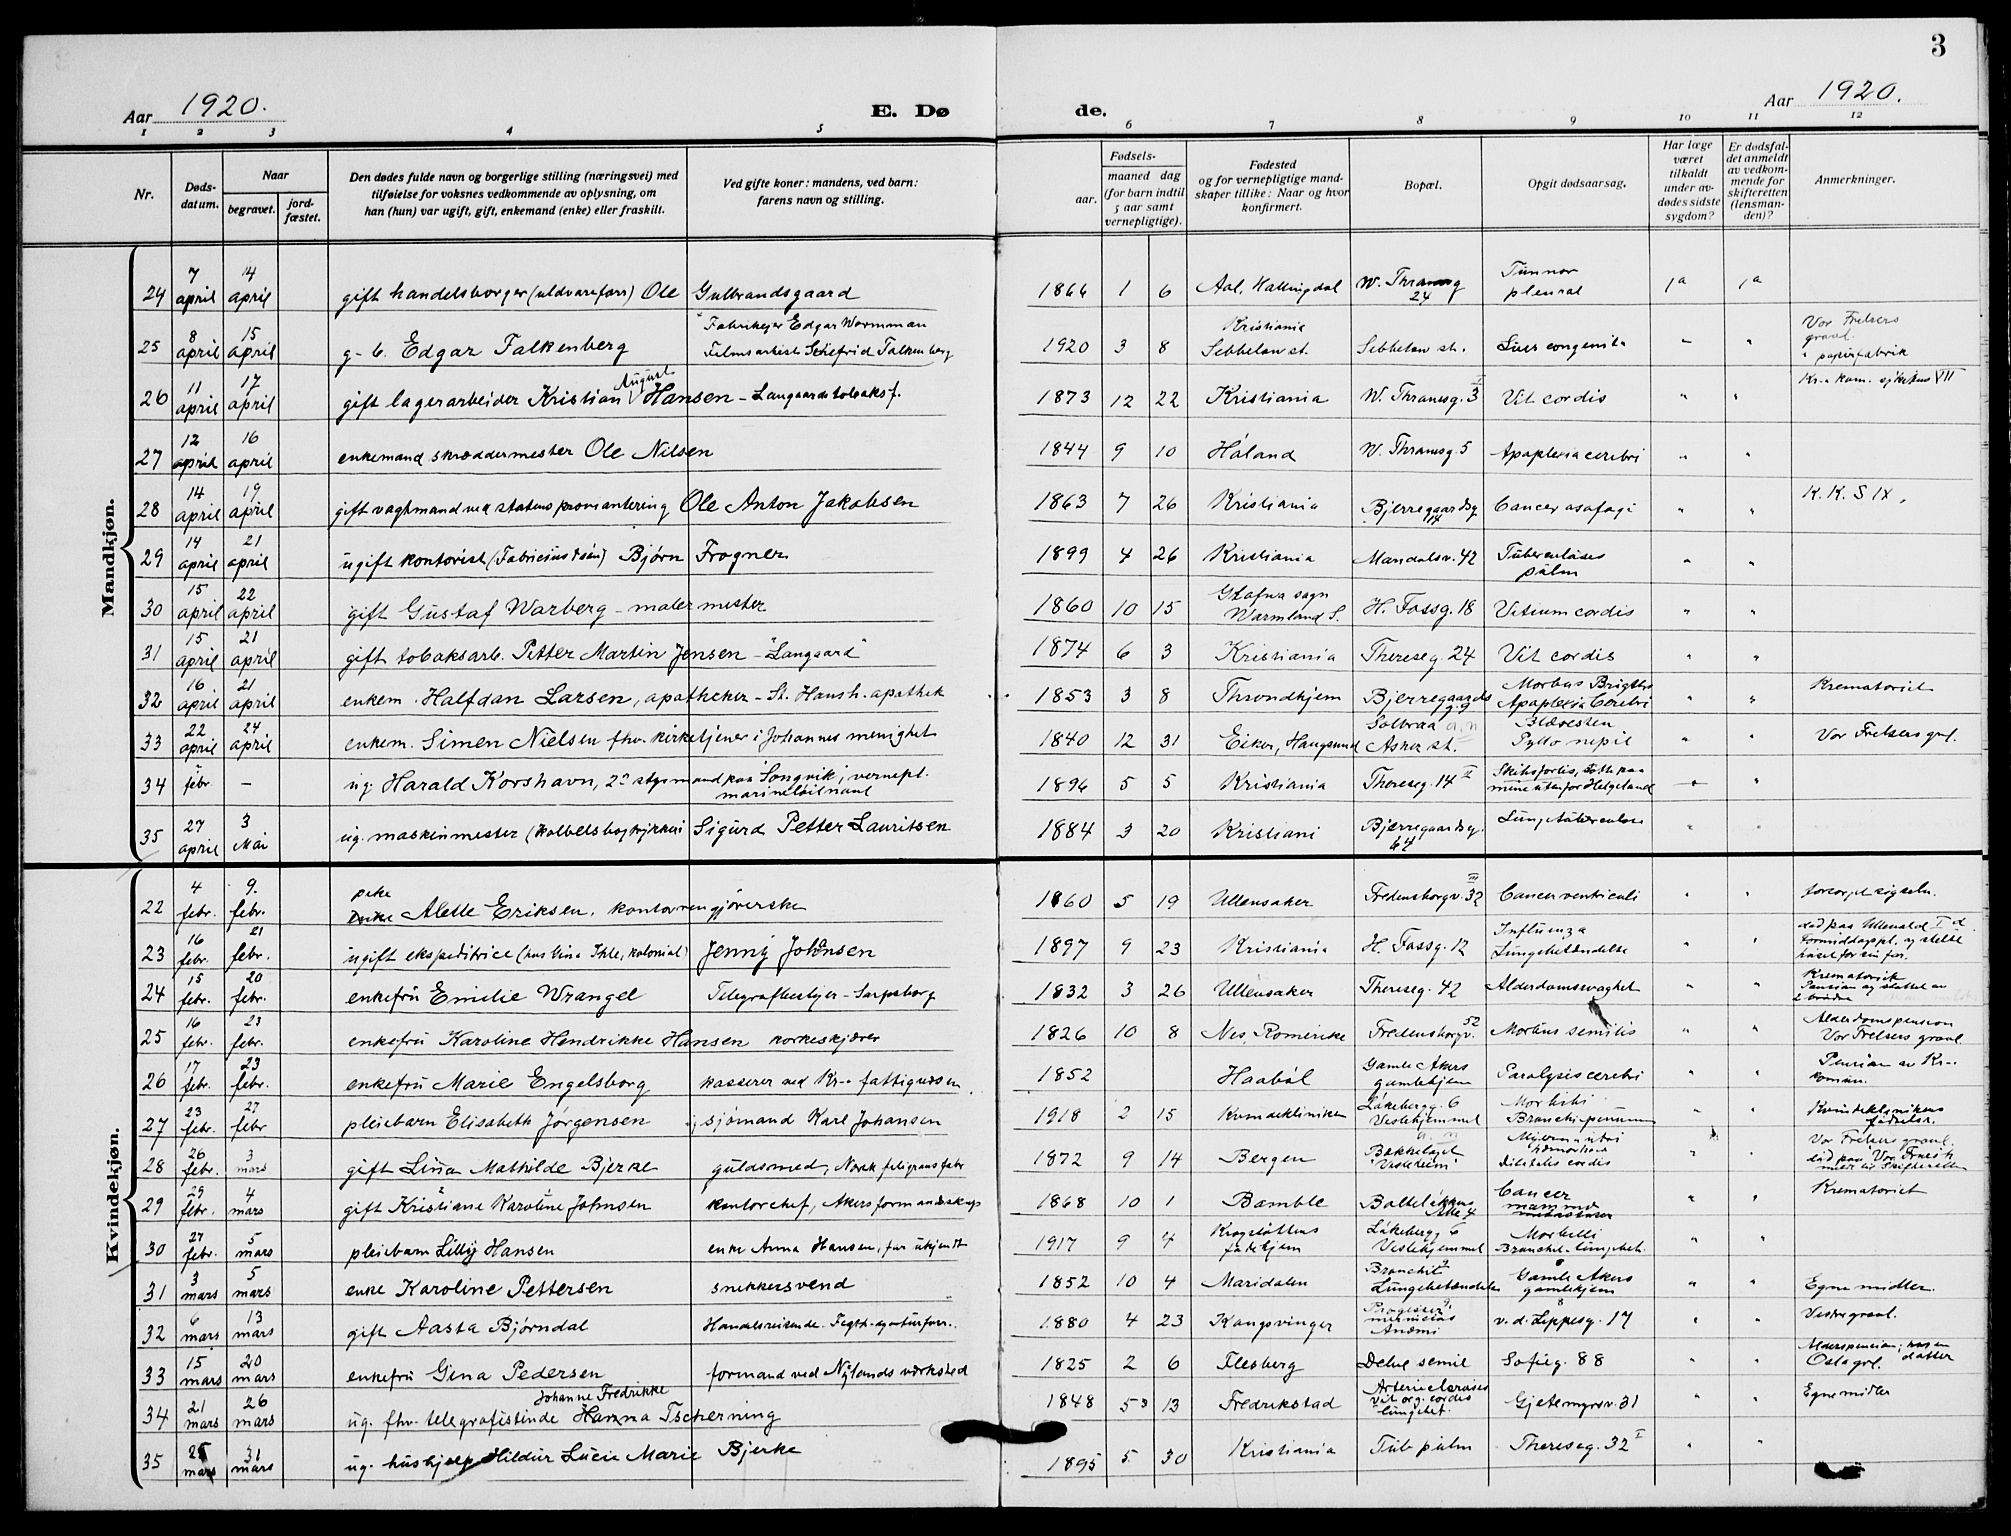 3
Aar 1920. E. Dø de. Aar 1920.
1 2 3 4 5 6 7 8 9 10 11 12
Nr.
Døds-
datum.
Naar
begravet.
jord-
fæstet.
Den dødes fulde navn og borgerlige stilling (næringsvei) med
tilføielse for voksnes vedkommende av oplysning, om
han (hun) var ugift, gift, enkemand (enke) eller fraskilt.
Ved gifte koner: mandens, ved barn:
farens navn og stilling.
Fødsels-
aar.
maaned dag
(for barn indtil
5 aar samt
vernepligtige).
Fødested
og for vernepligtige mand-
skaper tillike: Naar og hvor
konfirmert.
Bopæl.
Opgit dødsaarsag.
Har læge
været
tilkaldt
under av-
dødes sidste
sygdom?
Er dødsfal-
det anmeldt
av vedkom-
mende for
skifteretten
(lensman-
den)?
Anmerkninger.
Mandkjøn.
24 7 april 14 april gift handelsborger (uldvareforr) Ole Gulbrandsgaard 1866 1 6 Aal, Hallingdal W. Thranesg 24 Tumor pleural ja ja
25 8 april 15 april g-b. Edgar Falkenberg Fabrikeier Edgar Wormman 1920 3 8 Kristiania Sebbelow st. Sebbelow st. Lues congenita " " Vor Frelsers gravl.
papirfabrik
26 11 april 17 april gift lagerarbeider Kristian August Hansen - Langaards tobaksf. 1873 12 22 Kristiania W. Thranesg. 3 I Vit cordis " " Kr.a kom. sykehus VII
27 12 april 16 april enkemand skræddermester Ole Nilsen 1844 9 10 Høland W. Thranesg. 5 Apoplexia cerebri " "
28 14 april 19 april gift vagtmand ved statens proviantering Ole Anton Jakobsen 1863 7 26 Kristiania Bjerregaardsg 14 Cancer øsofagi " " K. K. S IX.
29 14 april 21 april ugift kontorist (Fabricius & søn) Bjørn Frogner 1899 4 26 Kristiania Mandalsv. 42 Tuberculoses pulm " "
30 15 april 22 april gift Gustaf Warberg - malermester 1860 10 15 Glafva sogn Warmland S. H. Fossg. 18 Vitium cordis " "
31 15 april 21 april gift tobaksarb. Petter Martin Jensen - "Langaard" 1874 6 3 Kristiania Thereseg. 24 Vit cordis " "
32 16. april 21 april enkem. Halfdan Larsen, apotheker - St. Hansh. apothek 1853 3 8 Throndhjem Bjerregaards g. 9 Morbus Brigthii Apoplexia Cerebri " " Krematoriet
33 22 april 24 april enkem. Simen Nielsen fhv. kirketjener i Johannes menighet 1840 12 31 Eiker, Haugsund Solbraa Asker st. Blæresten " " Vor Frelsers grl.
34 febr. - ug. Harald Korshavn, 2n styrmand paa "Songvik", vernepl. 1896 5 5 Kristiania Thereseg. 14 II Skibsforlis, støtte paa mine utenfor Helgeland "
35 27 april 3 Mai ug. maskinmester (Kolbelsbøtrykkeri Sigurd Petter Lauritsen 1884 3 20 Kristiani Bjerregaardsg. 64 Lungetuberculose " "
Kvindekjøn.
22 4 febr. 9. febr. pike Alette Eriksen. kontorrengjørerske 1860 5 19 Ullensaker Fredensborgv. 32 III Cancer ventriculi " " forsørget sig selv.
23 16 febr. 21 febr. ugift ekspeditrice (hos Lina Ihle, kolonial) Jenny Johnsen 1897 9 23 Kristiania H. Fossg. 12 Influenza Lungebetændelse " " død paa Ullevaal Id
Formiddagspl. og stelte huset for sin far.
24 15 febr. 20 febr. enkefru Emilie Wrangel Telegrafbestyrer - Sarpsborg 1832 3 26 Ullensaker Thereseg. 42 Alderdomssvaghet " " Krematoriet
Pension og støttet av 2 brødre
25 16 febr. 23 febr. enkefru Karoline Hendrikke Hansen korkeskjærer 1826 10 8 Nes, Romerike Fredensborgv. 52 Morbus senilis " " Alderdomspension
Vor Frelsers gravl
26 17 febr. 23 febr. enkefru Marie Engelsborg kasserer ved Kr-a fattigvæsen 1852 Haabøl Gamle Akers gamlehjem Paralysis cerebri " " Pension av Kr-a komun.
27 23 febr. 27 febr pleiebarn Elisabeth Jørgensen sjømand Karl Johansen 1918 2 15 Kvindekliniken Løkebergg. 6 Veslehjemmet Morbilli Bronchi-pneumoni " " Kvindeklinikens fødselsr.
28 26 febr. 3 mars gift Lina Mathilde Bjerke guldsmed, Norsk filigransfabr 1872 9 14 Bergen Bekkelaget "Vesleheim" dilitatis cordis " " Vor Frelsers gravl.
29 29 febr. 4 mars gift Kristiane Karoline Johnsen kontorchef, Akers formandskap 1868 10 1 Bamble Bolteløkkens Alle 4 Cancer mammae metastaser " " Krematoriet
30 27 febr. 5 mars pleiebarn Lilly Hansen enke Anna Hansen, far ukjendt 1917 9 4 Krogstøttens fødehjem Løkebergg 6 Veslehjemmet Morbilli Bronchit-lungebet. " "
31 3 mars 5 mars enke Karoline Pettersen snekkersvend 1852 10 4 Maridalen Bronchit Lungebetændelse Gamle Akers gamlehjem " " Egne midler.
32 6 mars 13 mars gift Aasta Bjørndal Handelsreisende. 1880 4 23 Kongsvinger Progressiv perniciøs Anæmi v. d. Lippesg. 17 " " Vestre gravl.
33 15 mars 20 mars enkefru Gina Pedersen formand ved Nylands værksted 1825 2 6 Flesberg Debil senil Sofieg. 88 " " Alderspension, hos en datter
Oslo grl.
34 21 mars 26 mars ug. fhv. telegrafistinde Johanne Fredrikke Hanna Tscherning 1848 5 13 Fredrikstad Arteriesclerose vit org. cordis lungebet. Gjetemyrsv. 31 " " Egne midler
35 25 mars 31 mars ug. hushjelp Hildur Lucie Marie Bjerke 1895 5 30 Kristiania Tub pulm Thereseg. 32 I " "